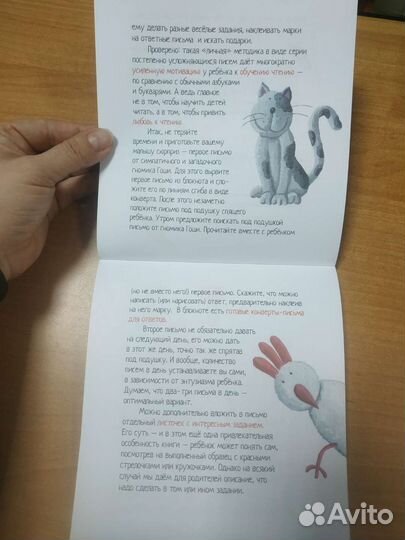 ему делать разные весёлые задания, наклеивать марки
на ответные письма и искать подарки.
Проверено: такая «личная» методика в виде серии
постепенно усложняющихся писем даёт многократно
усиленную мотивацию у ребёнка к обучению чтению —
по сравнению с обычными азбуками
и букварями. А ведь главное
не в том, чтобы научить детей
читать, а в том, чтобы привить
любовь к чтению.
Итак, не теряйте
времени и приготовьте вашему
малышу сюрприз — первое письмо
от симпатичного и загадочного
гномика Гоши. Для этого вырвите
первое письмо из блокнота и сло-
жите его по линиям сгиба в виде
конверта. После этого незаметно
положите письмо под подушку спящего
ребёнка. Утром предложите поискать под подушкой
письмо от гномика Гоши. Прочитайте вместе с ребёнком
(но не вместо него!) первое письмо. Скажите, что можно
написать (или нарисовать) ответ, предварительно наклеив
на него марку. В блокноте есть готовые конверты-письма
для ответов.
Второе письмо не обязательно давать
на следующий день, его можно дать
в этот же день, точно так же спрятав
под подушку. И вообще, количество
писем в день устанавливаете вы сами,
в зависимости от энтузиазма ребёнка.
Думаем, что два-три письма в день —
оптимальный вариант.
Можно дополнительно вложить в письмо
отдельный листочек с интересным заданием.
Его суть — и в этом ещё одна привлекательная
особенность книги — ребёнок может понять сам,
посмотрев на выполненный образец с красными
стрелочками или кружочками. Однако на всякий
случай мы даём для родителей описание, что
надо сделать в том или ином задании.
Avito